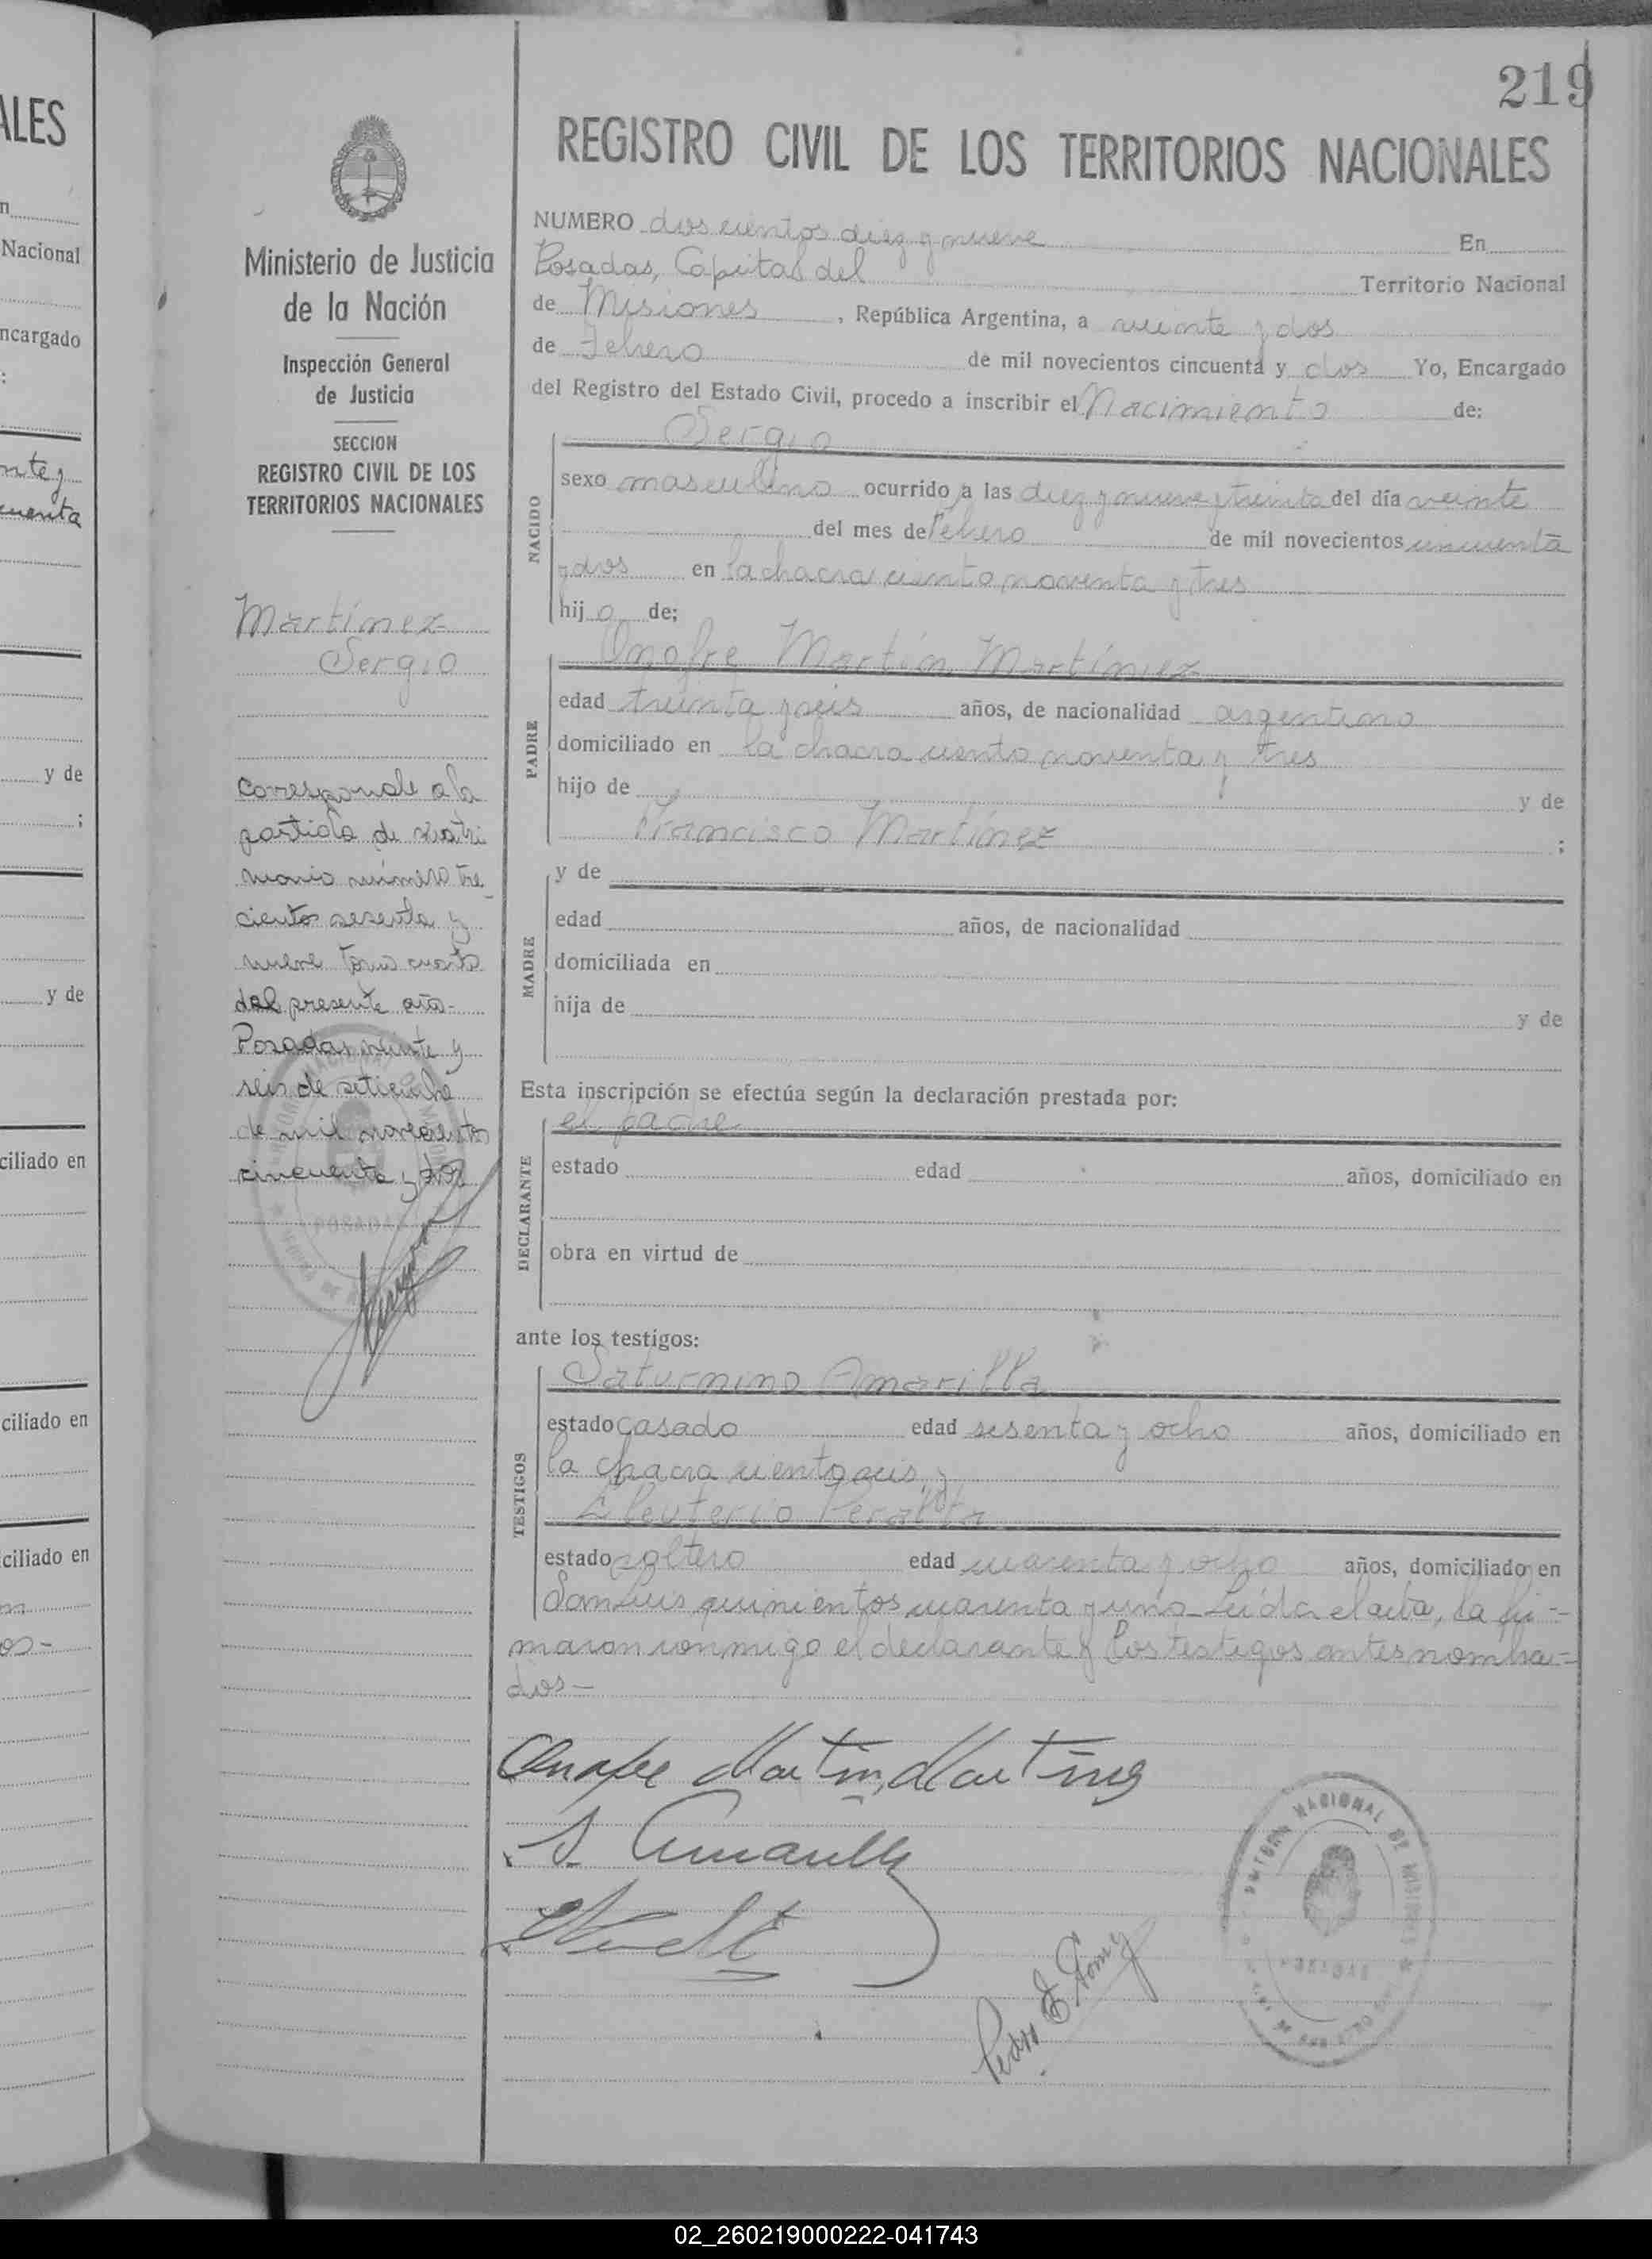 ALES
n
Nacional
ncargado
:
nte y
cuenta
y de
;
y de
ciliado en
ciliado en
ciliado en
os-
Ministerio de Justicia
de la Nación
Inspección General
de Justicia
SECCION
REGISTRO CIVIL DE LOS
TERRITORIOS NACIONALES
Martínez
Sergio
Corresponde a la
partida de matri
monio número tre
cientos sesenta y
nueve tomo cuarto
del presente año-
Posadas, veinte y
seis de setiembre
de mil novecientos
cincuenta y dos
POSADAS
219
REGISTRO CIVIL DE LOS TERRITORIOS NACIONALES
NUMERO dos cientos diez y nueve En
Posadas, Capital del Territorio Nacional
de Misiones, República Argentina, a veinte y dos
de Febrero de mil novecientos cincuenta y dos Yo, Encargado
del Registro del Estado Civil, procedo a inscribir el Nacimiento de:
NACIDO
Sergio
sexo masculino ocurrido a las diez y nueve y treinta del día veinte
del mes de Febrero de mil novecientos cincuenta
y dos en la chacra ciento noventa y tres
hijo de;
PADRE
Onofre Martín Martínez
edad treinta y seis años, de nacionalidad argentino
domiciliado en la chacra ciento noventa y tres
hijo de y de
Francisco Martínez ;
MADRE
y de
edad años, de nacionalidad
domiciliada en
hija de y de
Esta inscripción se efectúa según la declaración prestada por:
DECLARANTE
el padre
estado edad años, domiciliado en
obra en virtud de
ante los testigos:
TESTIGOS
Saturnino Amarilla
estado casado edad sesenta y ocho años, domiciliado en
la chacra ciento seis, y
Eleuterio Peralta
estado soltero edad cuarenta y ocho años, domiciliado en
San Luis quinientos cuarenta y uno- Leída el acta, la fir=
maron conmigo el declarante y los testigos antes nombra=
dos-
Onofre Martin Martinez
S. Amarilla
NACIONAL DE MISIONES
Pedro E. Gomez
02_260219000222-041743